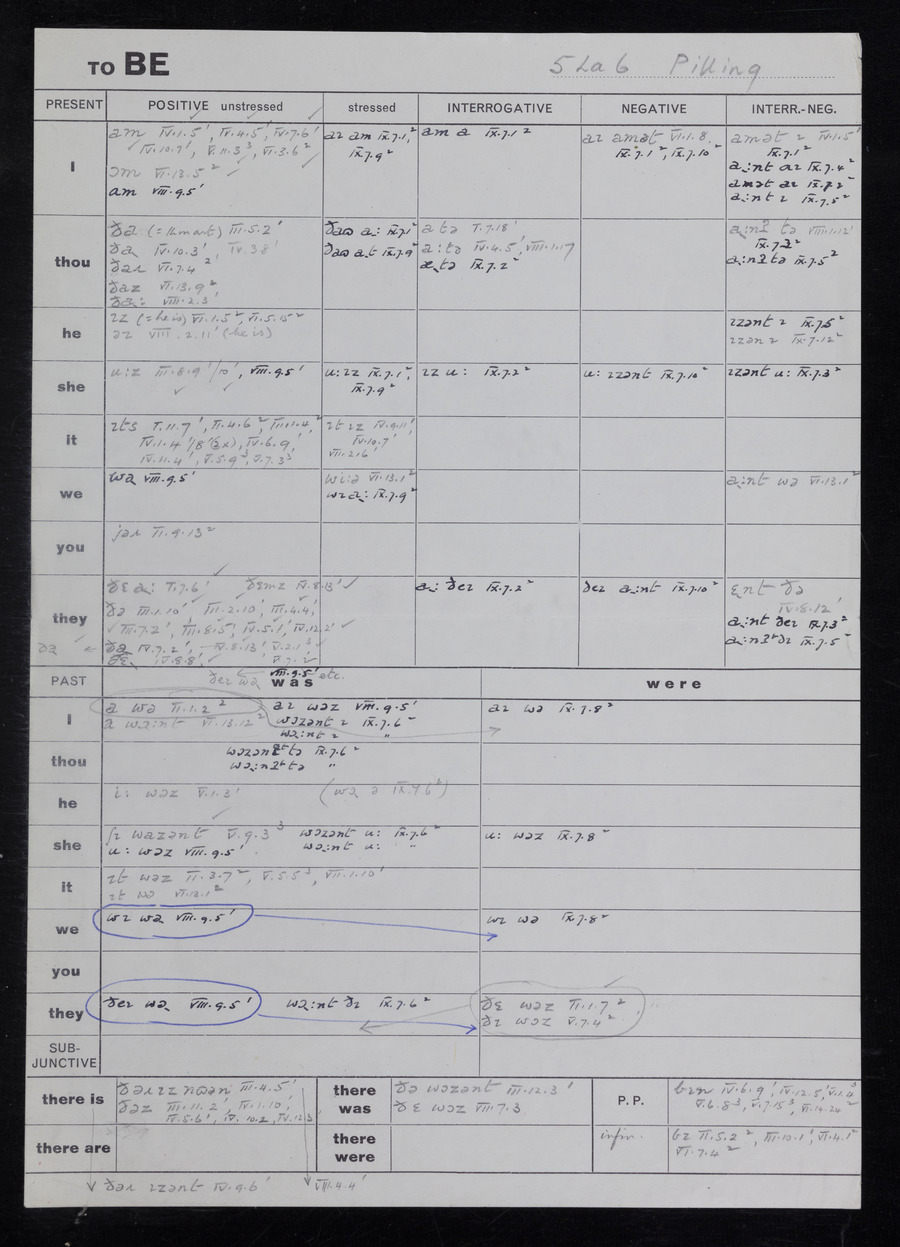 TO BE 5 La 6 Pilling
PRESENT POSITIVE unstressed stressed INTERROGATIVE NEGATIVE INTERR.-NEG.
I
am IV.1.5', IV.4.5', IV.7.6'
IV.10.7', V.11.3³, VI.3.6²
əm VI.13.5²
am VIII.9.5'
aɪ am IX.7.1²,
IX.7.9²
am a IX.7.1²
aɪ amət VI.1.8,
IX.7.1², IX.7.10²
amət ɪ IV.1.5'
IX.7.1²
a:nt aɪ IX.7.4²
amət aɪ IX.7.2²
a:nt ɪ IX.7.5²
thou
ða (= thou art) III.5.2'
ða IV.10.3', IV.3.8'
ðaɪ VI.7.4²
ðaz VI.13.9²
ða: VIII.2.3'
ðaʊ a: IX.7.1²
ðaʊ at IX.7.9²
a tə I.7.18'
a:tə IV.4.5', VIII.1.17
IX.7.2²
a:nʔ tə VIII.1.12'
IX.7.2²
a:nʔ tə IX.7.5²
he
ɪz (= he is) VI.1.5², VI.5.15²
əz VIII.2.11' (he is)
ɪzənt ɪ IX.7.5²
ɪzən ɪ IX.7.12²
she
u:z III.8.9'/10', VIII.9.5'
u: ɪz IX.7.1²,
IX.7.9²
ɪz u: IX.7.2²
u: ɪzənt IX.7.10²
ɪzənt u: IX.7.3²
it
ɪts I.11.7', II.4.6², III.11.4',
IV.1.4'/8'(2x), IV.6.9',
IV.11.4', V.5.9³, V.7.3³
ɪt ɪz IV.9.11',
IV.10.7'
VII.2.6'
we
wa VIII.9.5'
wi:ə VI.13.1²
wɪ a: IX.7.9²
a:nt wə VI.13.1²
you
jəɪ II.9.13²
they
ðɛ a: I.7.6' ðɛmz IV.8.13'
ðə III.1.10', III.2.10', III.4.4',
III.7.2', III.8.5', IV.5.1', IV.12.2'
ða IV.7.2', IV.8.13', V.2.1³
ðɛ IV.8.8', V.7.2
a: ðeɪ IX.7.2²
ðeɪ a:nt IX.7.10²
ɛnt ðə
IV.8.12'
a:nt ðeɪ IX.7.3²
a:nʔ ðɪ IX.7.5²
PAST ðeɪ wə VIII.9.5' etc. was were
I
a wə II.1.2²
a wa:nt VI.13.12²
aɪ wəz VIII.9.5'
wəzənt ɪ IX.7.6²
wa:nt ɪ "
aɪ wə IX.7.8²
thou
wəzənʔ tə IX.7.6²
wa:nʔ tə "
he
i: wəz V.1.3' (wa ə IX.7.6²)
she
ʃɪ wazənt V.9.3³ wəzənt u: IX.7.6²
u: wəz VIII.9.5' wə:nt u: "
u: wəz IX.7.8²
it
ɪt wəz II.3.7², V.5.5³, VII.1.10'
ɪt wə VI.13.1²
we
wɪ wa VIII.9.5' wɪ wə IX.7.8²
you
they
ðeɪ wə VIII.9.5' wa:nt ðɪ IX.7.6²
ðɛ wəz II.1.7²
ðɪ wɔz V.7.4²
SUB-
JUNCTIVE
there is
III.4.5'
ðəz III.11.2', IV.1.10',
IV.5.6', IV.10.2, IV.12.3'
there
was
ðə wəzənt III.12.3'
ðɛ wəz VIII.7.3
P.P.
bɪn IV.6.9', IV.12.5', V.1.4³
V.6.8³, V.7.15³, VI.14.24²
there are
there
were
infin.
bɪ II.5.2², III.10.1', VI.4.1²
VI.7.4²
ðəɪ ɪzənt IV.9.6' VIII.4.4'